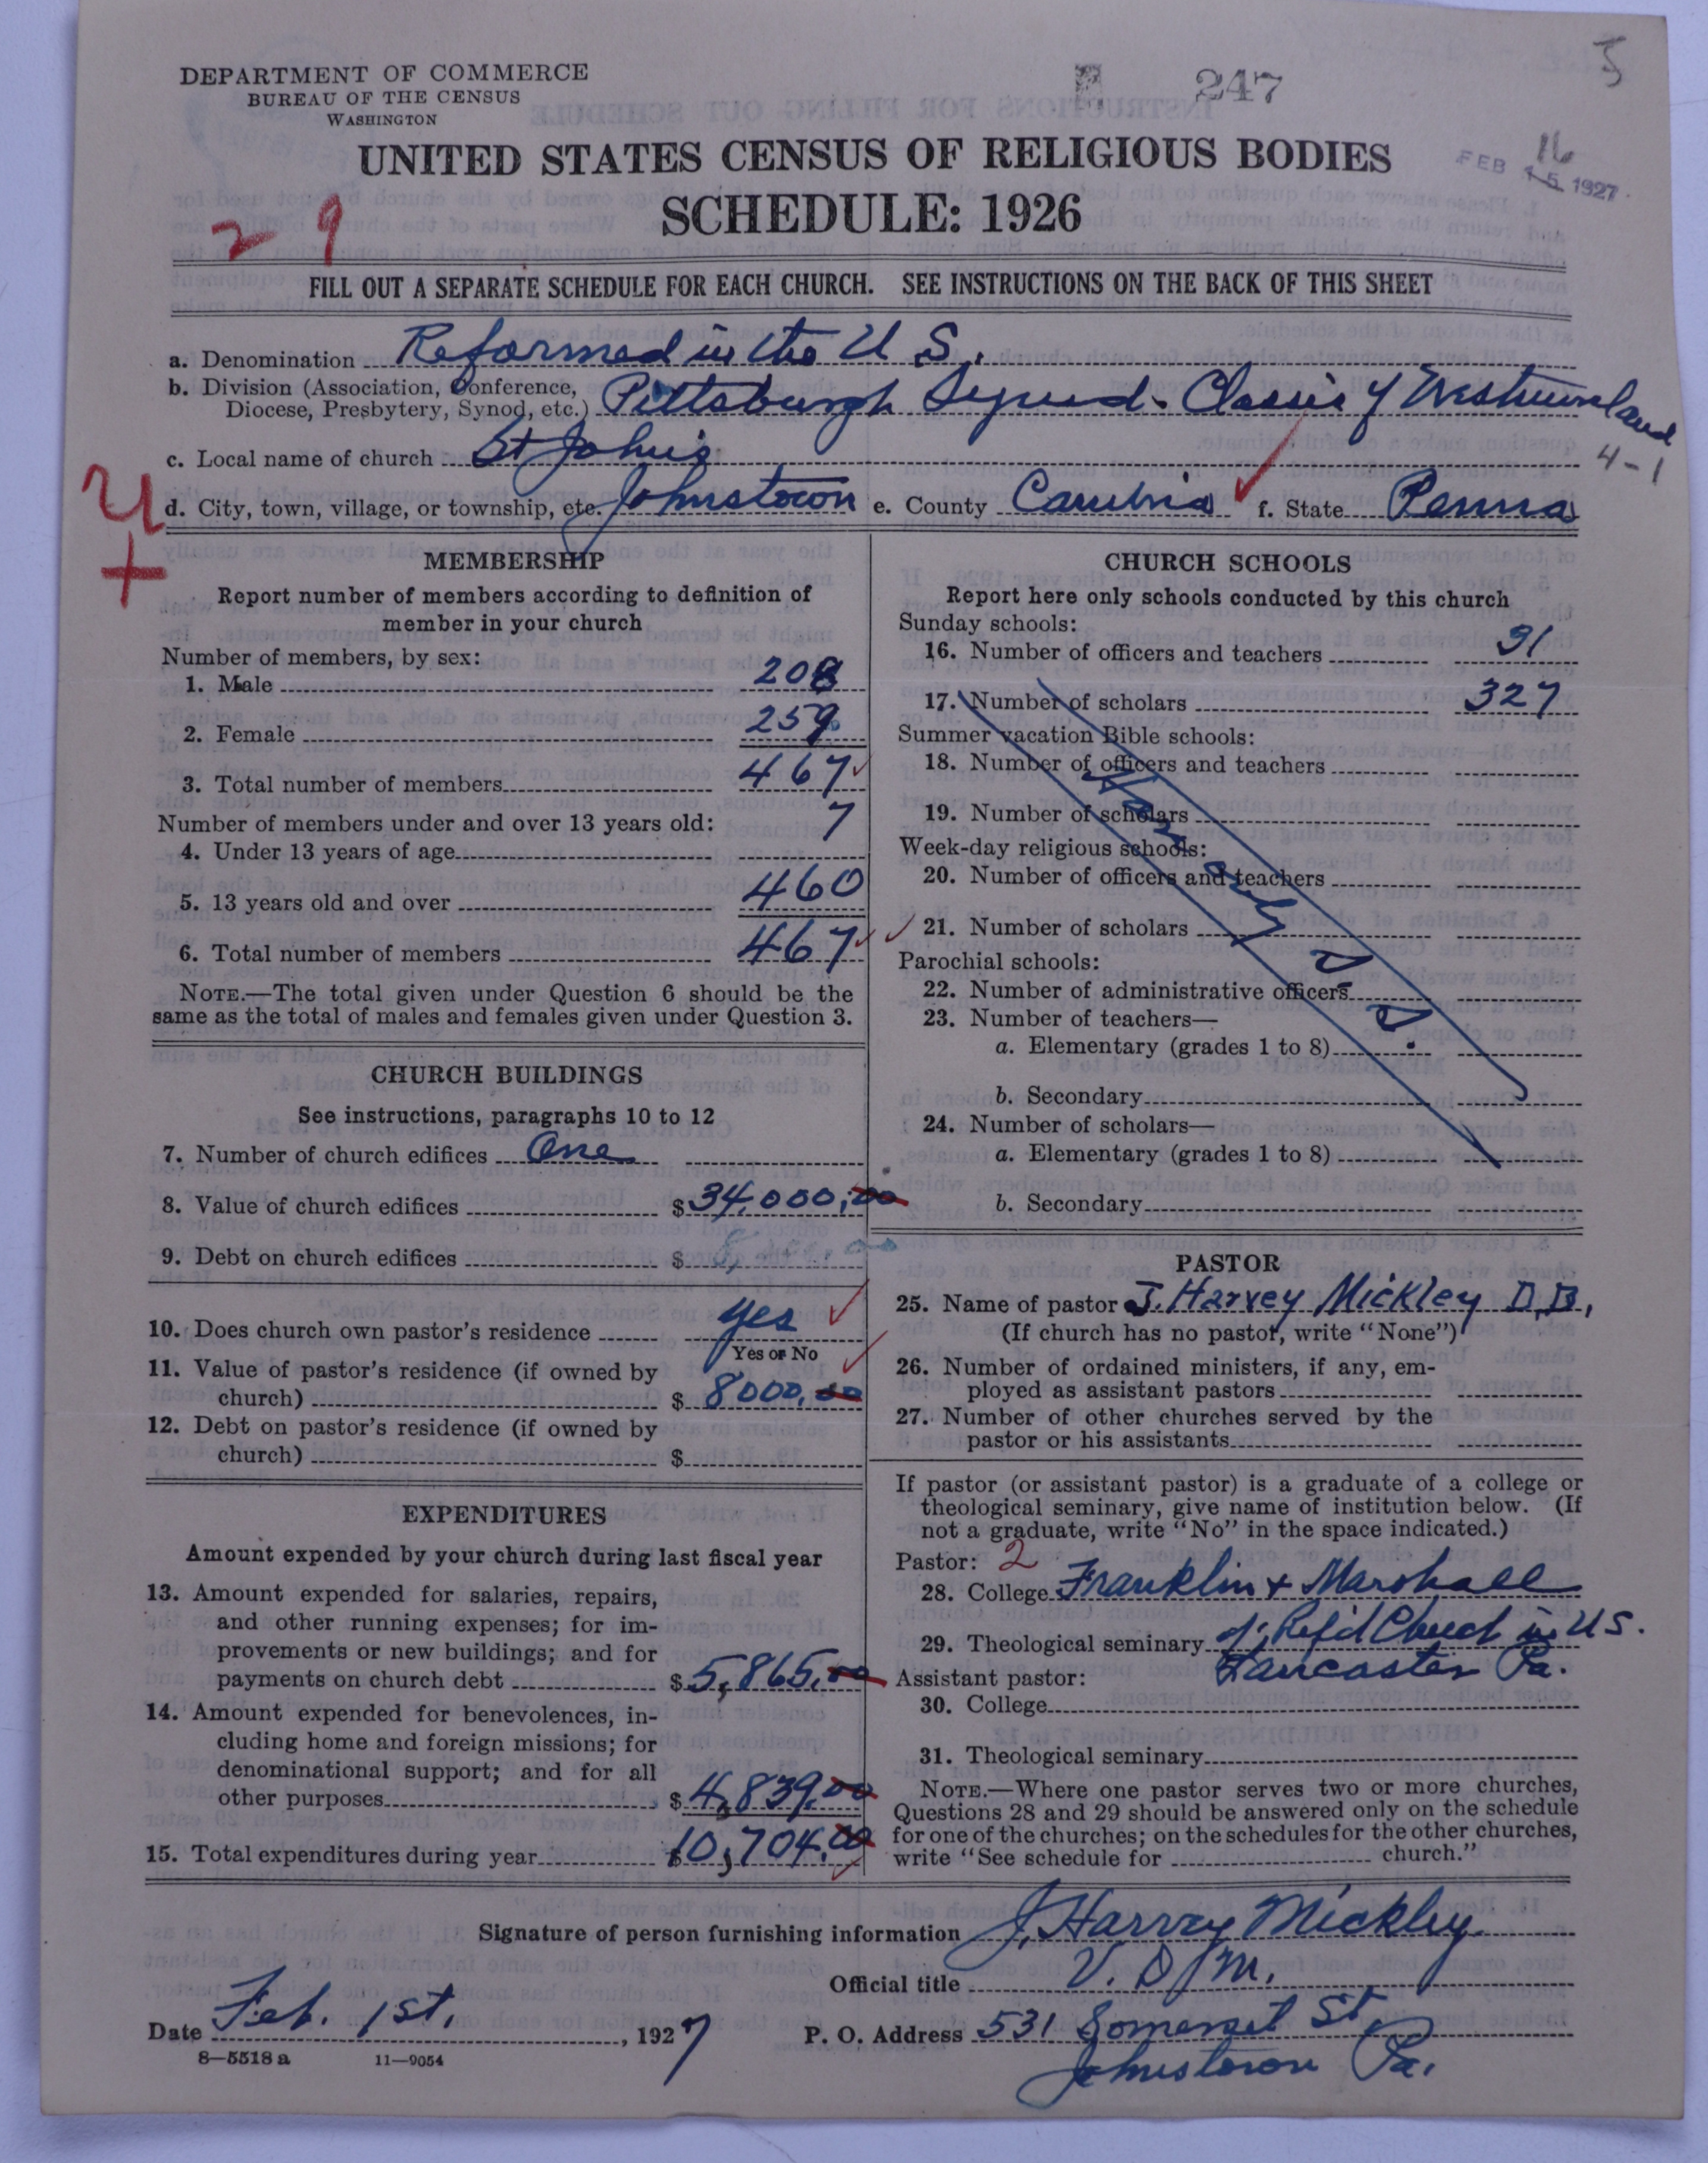 5
DEPARTMENT OF COMMERCE
BUREAU OF THE CENSUS
WASHINGTON
247
UNITED STATES CENSUS OF RELIGIOUS BODIES
SCHEDULE: 1926
16
FEB 15 1927
29
FILL OUT A SEPARATE SCHEDULE FOR EACH CHURCH. SEE INSTRUCTIONS ON THE BACK OF THIS SHEET
a. Denomination Reformed in the U S.
b. Division (Association, Conference,
Diocese, Presbytery, Synod, etc.) Pittsburgh Synod - Classis of Westmoreland
4-1
c. Local name of church St John's
d. City, town, village, or township, etc. Johnstown e. County Cambria f. State Penna
MEMBERSHIP
Report number of members according to definition of
member in your church
Number of members, by sex:
1. Male 208
2. Female 259
3. Total number of members 467
Number of members under and over 13 years old:
4. Under 13 years of age 7
5. 13 years old and over 460
6. Total number of members 467
NOTE.—The total given under Question 6 should be the
same as the total of males and females given under Question 3.
CHURCH BUILDINGS
See instructions, paragraphs 10 to 12
7. Number of church edifices One
8. Value of church edifices $34,000.00
9. Debt on church edifices $
10. Does church own pastor's residence yes
Yes or No
11. Value of pastor's residence (if owned by
church) $ 8000.00
12. Debt on pastor's residence (if owned by
church) $
EXPENDITURES
Amount expended by your church during last fiscal year
13. Amount expended for salaries, repairs,
and other running expenses; for im-
provements or new buildings; and for
payments on church debt $5,865.00
14. Amount expended for benevolences, in-
cluding home and foreign missions; for
denominational support; and for all
other purposes $4,839.00
15. Total expenditures during year $10,704.00
CHURCH SCHOOLS
Report here only schools conducted by this church
Sunday schools:
16. Number of officers and teachers 31
17. Number of scholars 327
Summer vacation Bible schools:
18. Number of officers and teachers
19. Number of scholars
Week-day religious schools:
20. Number of officers and teachers
21. Number of scholars
Parochial schools:
22. Number of administrative officers
23. Number of teachers—
a. Elementary (grades 1 to 8)
b. Secondary
24. Number of scholars—
a. Elementary (grades 1 to 8)
b. Secondary
PASTOR
25. Name of pastor J. Harvey Mickley D.D.,
(If church has no pastor, write "None")
26. Number of ordained ministers, if any, em-
ployed as assistant pastors
27. Number of other churches served by the
pastor or his assistants
If pastor (or assistant pastor) is a graduate of a college or
theological seminary, give name of institution below. (If
not a graduate, write "No" in the space indicated.)
Pastor: 2
28. College Franklin & Marshall
29. Theological seminary of Ref'd Church in U S.
Lancaster Pa.
Assistant pastor:
30. College
31. Theological seminary
NOTE.—Where one pastor serves two or more churches,
Questions 28 and 29 should be answered only on the schedule
for one of the churches; on the schedules for the other churches,
write "See schedule for church."
Signature of person furnishing information J. Harvey Mickley
Official title V. D. M.
Date Feb. 1st., 1927 P. O. Address 531 Somerset St,
Johnstown Pa.
8—5518 a 11—9054